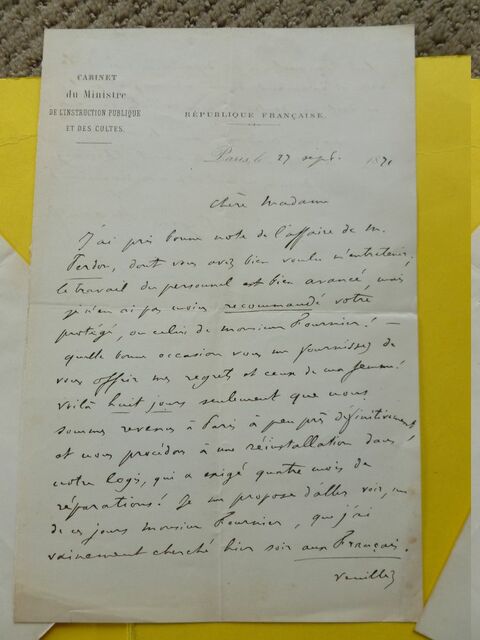 CABINET
du Ministre
DE L'INSTRUCTION PUBLIQUE
ET DES CULTES.
RÉPUBLIQUE FRANÇAISE.
Paris, le 27 sept. 1871
Chère Madame
J'ai pris bonne note de l'affaire de M.
Perdon, dont vous avez bien voulu m'entretenir,
le travail du personnel est bien avancé, mais
je n'en ai pas moins recommandé votre
protégé, ou celui de Monsieur Fournier! —
quelle bonne occasion vous me fournissez de
vous offrir mes regrets et ceux de ma femme!
Voilà huit jours seulement que nous
sommes revenus à Paris à peu près définitivement
et nous procédons à une réinstallation dans
notre logis, qui a exigé quatre mois de
réparations! Je me propose d'aller voir, un
de ces jours Monsieur Fournier, que j'ai
vainement cherché hier soir aux Français.
Veuillez